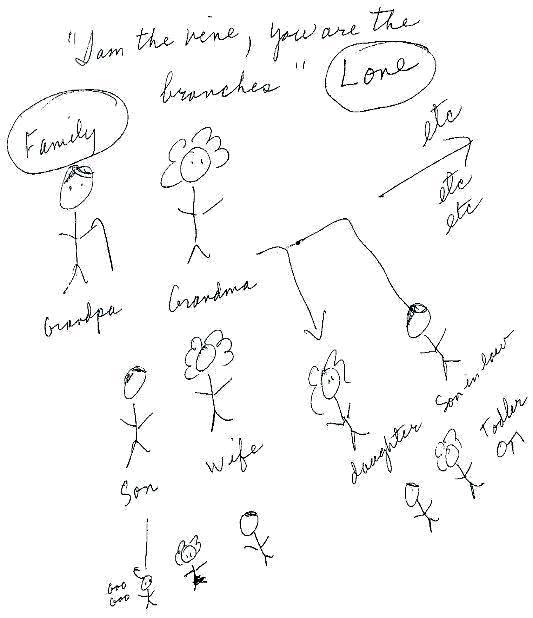 "I am the vine, you are the
branches"
Love
Family
etc
etc
etc
Grandpa
Grandma
Son
Wife
daughter
Son in law
Todler
Goo
Goo